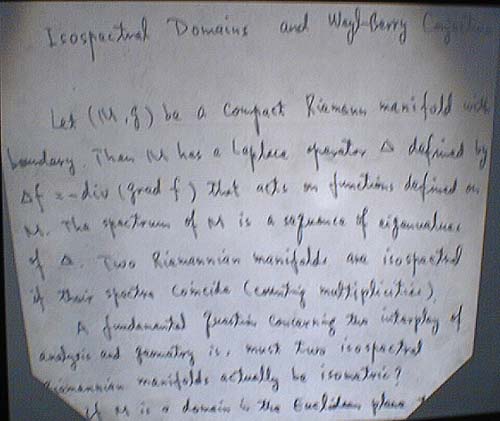 Isospectral Domains and Weyl-Berry Conjecture
Let (M, g) be a compact Riemann manifold with
boundary. Then M has a Laplace operator Δ defined by
Δf = -div (grad f) that acts on functions defined on
M. The spectrum of M is a sequence of eigenvalues
of Δ. Two Riemannian manifolds are isospectral
if their spectra coincide (counting multiplicities).
A fundamental question concerning the interplay of
analysis and geometry is, must two isospectral
Riemannian manifolds actually be isometric?
If M is a domain in the Euclidean plane